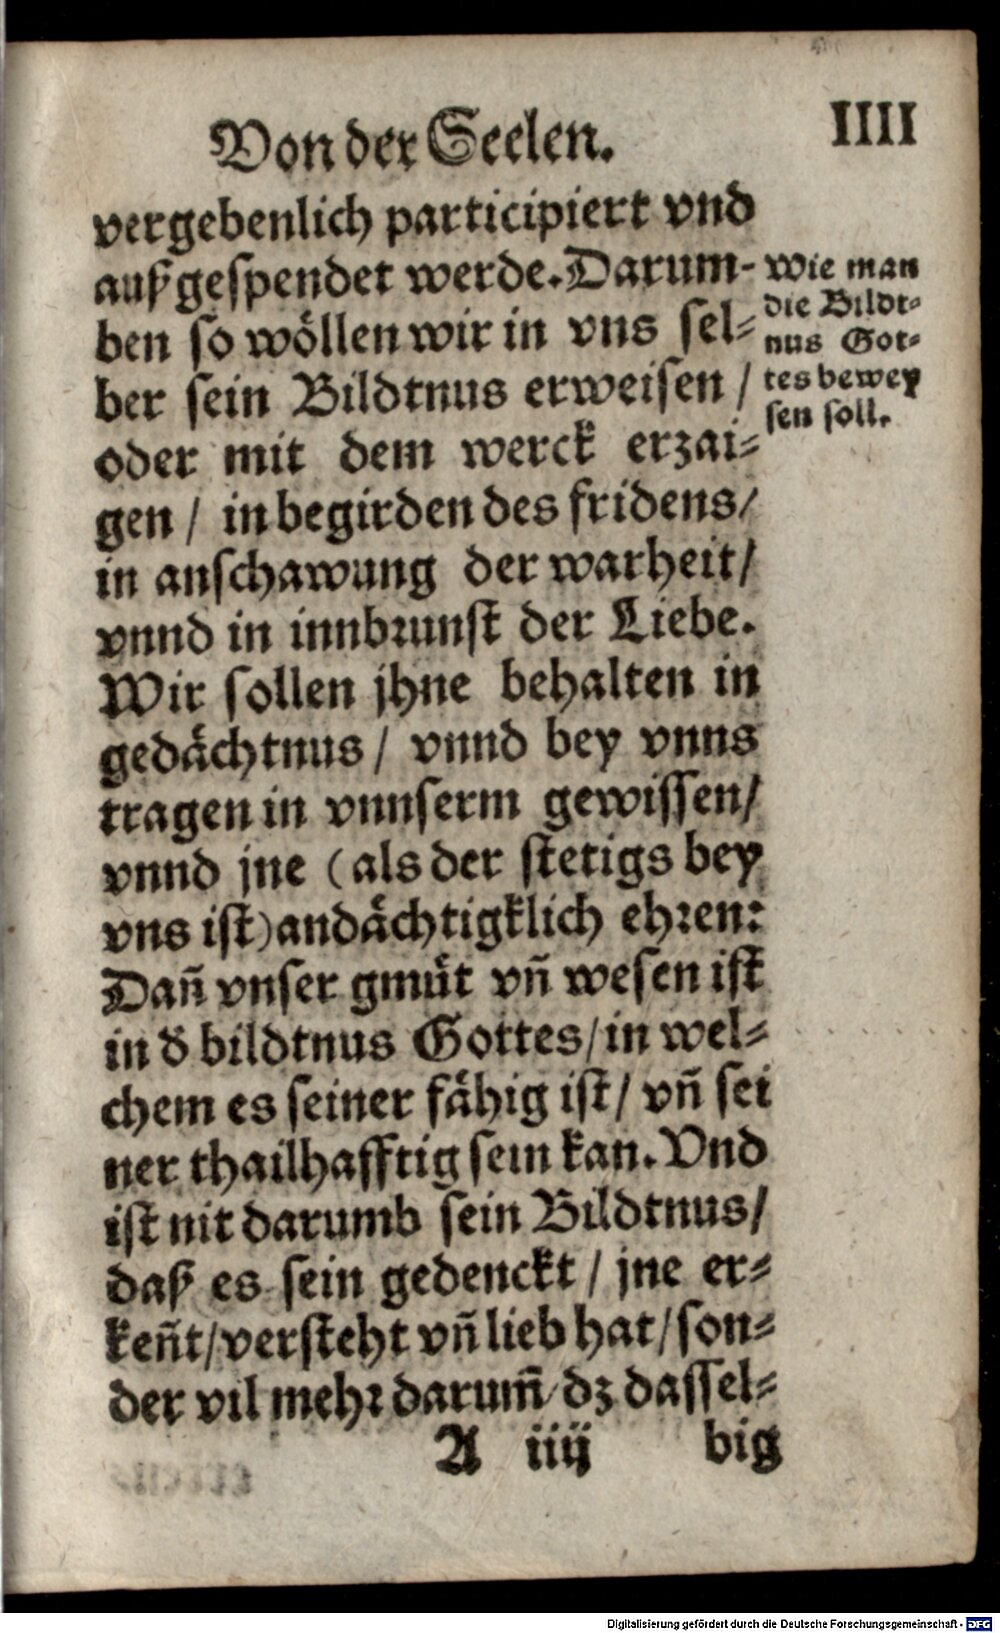 Von der Seelen.
IIII
vergebenlich participiert vnd
außgespendet werde. Darum-
ben so wöllen wir in vns sel-
ber sein Bildtnus erweisen /
oder mit dem werck erzai-
gen / in begirden des fridens/
in anschawung der warheit/
vnnd in innbrunst der Liebe.
Wir sollen jhne behalten in
gedächtnus / vnnd bey vnns
tragen in vnnserm gewissen/
vnnd jne (als der stetigs bey
vns ist) andächtigklich ehren:
Dañ vnser gmüt vñ wesen ist
in d̕ bildtnus Gottes/in wel-
chem es seiner fähig ist/ vñ sei
ner thailhafftig sein kan. Vnd
ist nit darumb sein Bildtnus/
daß es sein gedenckt / jne er-
keñt/versteht vñ lieb hat/son-
der vil mehr darum̃ dz dassel-
A iiij
big
wie man
die Bildt-
nus Got-
tes bewey
sen soll.
Digitalisierung gefördert durch die Deutsche Forschungsgemeinschaft - DFG